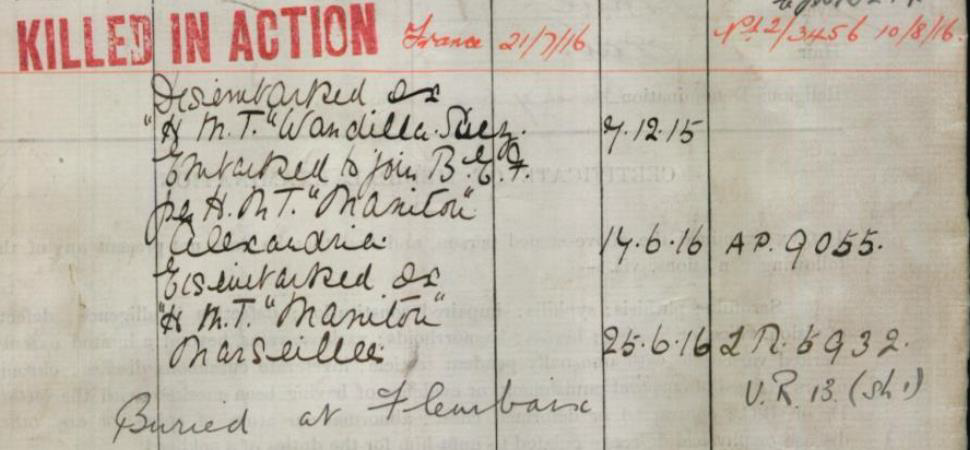 KILLED IN ACTION France 21/7/16 Pt 2/3456 10/8/16.
Disembarked ex
"H.M.T. "Wandilla. Suez. 7.12.15
Embarked to join B.E.F.
per H.M.T. "Manitou"
Alexandria 17.6.16 AP. 9055.
Disembarked ex
"H.M.T. "Manitou"
Marseilles 25.6.16 LR. 5932.
V.R 13. (Sh 1)
Buried at Fleurbaix